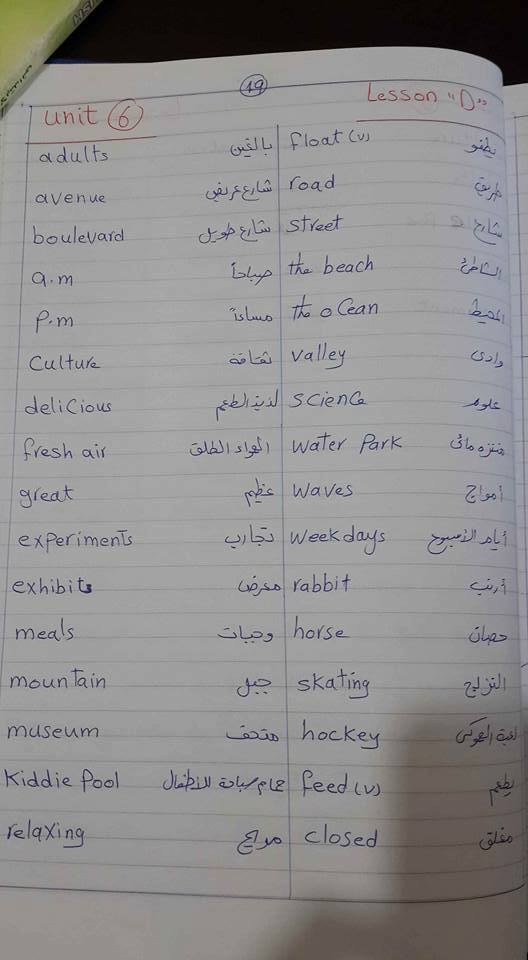 19
Unit 6 Lesson "D"
adults بالغين float (v) يطفو
avenue شارع عريض road طريق
boulevard شارع طويل street شارع
a.m صباحاً the beach الشاطئ
P.m مساءً the oCean المحيط
Culture ثقافة valley وادى
deliCious لذيذ الطعم science علوم
fresh air الهواء الطلق water Park منتزه مائى
great عظيم waves أمواج
experiments تجارب weekdays أيام الأسبوع
exhibits معرض rabbit أرنب
meals وجبات horse حصان
mountain جبل skating التزلج
museum متحف hockey لعبة الهوكى
Kiddie Pool حمام سباحة للأطفال feed (v) يطعم
relaxing مريح closed مغلق